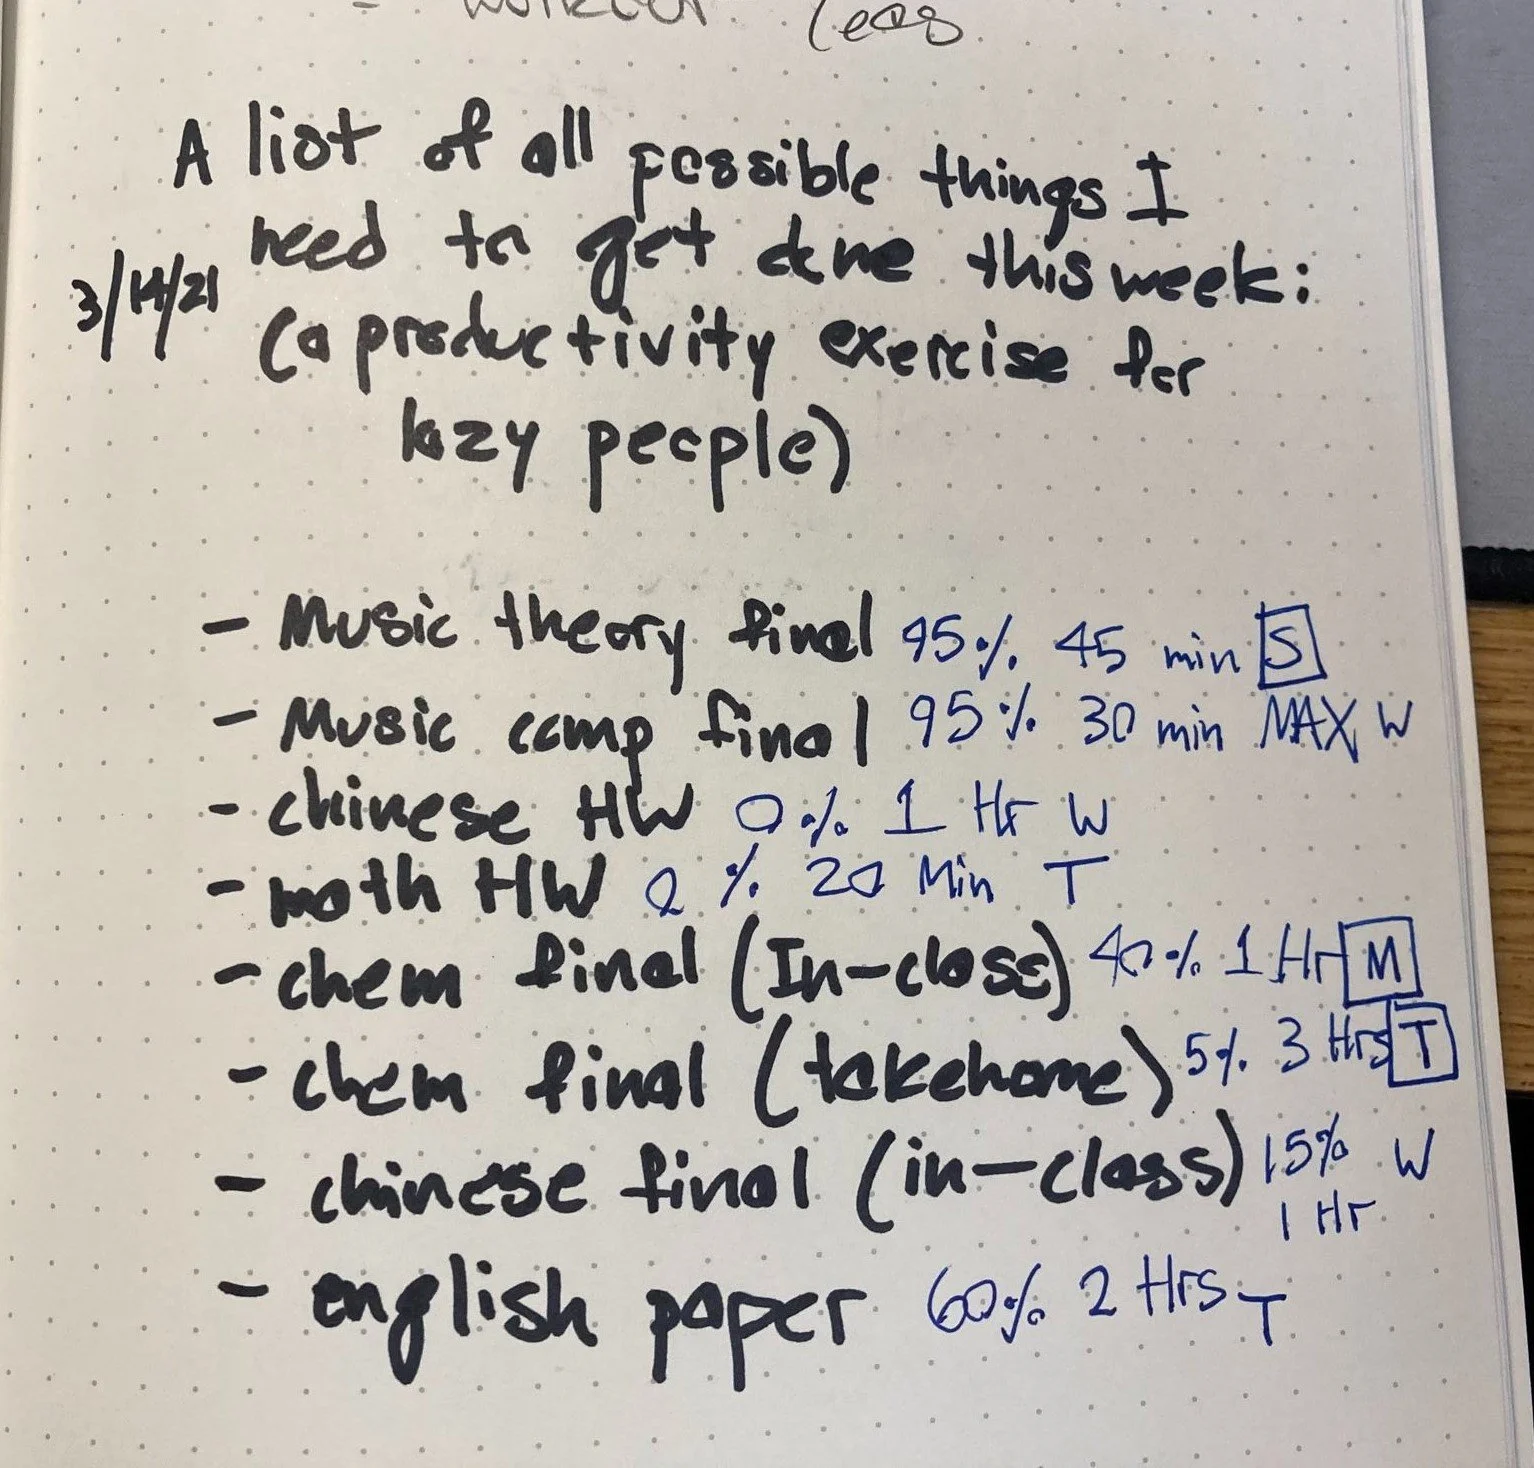 leas
A list of all possible things I
need to get done this week:
3/14/21
(a productivity exercise for
lazy people)
- Music theory final 95% 45 min S
- Music comp final 95% 30 min MAX W
- chinese HW 0% 1 Hr W
- math HW 0% 20 Min T
- chem final (In-class) 40% 1 Hr M
- chem final (takehome) 5% 3 Hrs T
- chinese final (in-class) 15% W
1 Hr
- english paper 60% 2 Hrs T